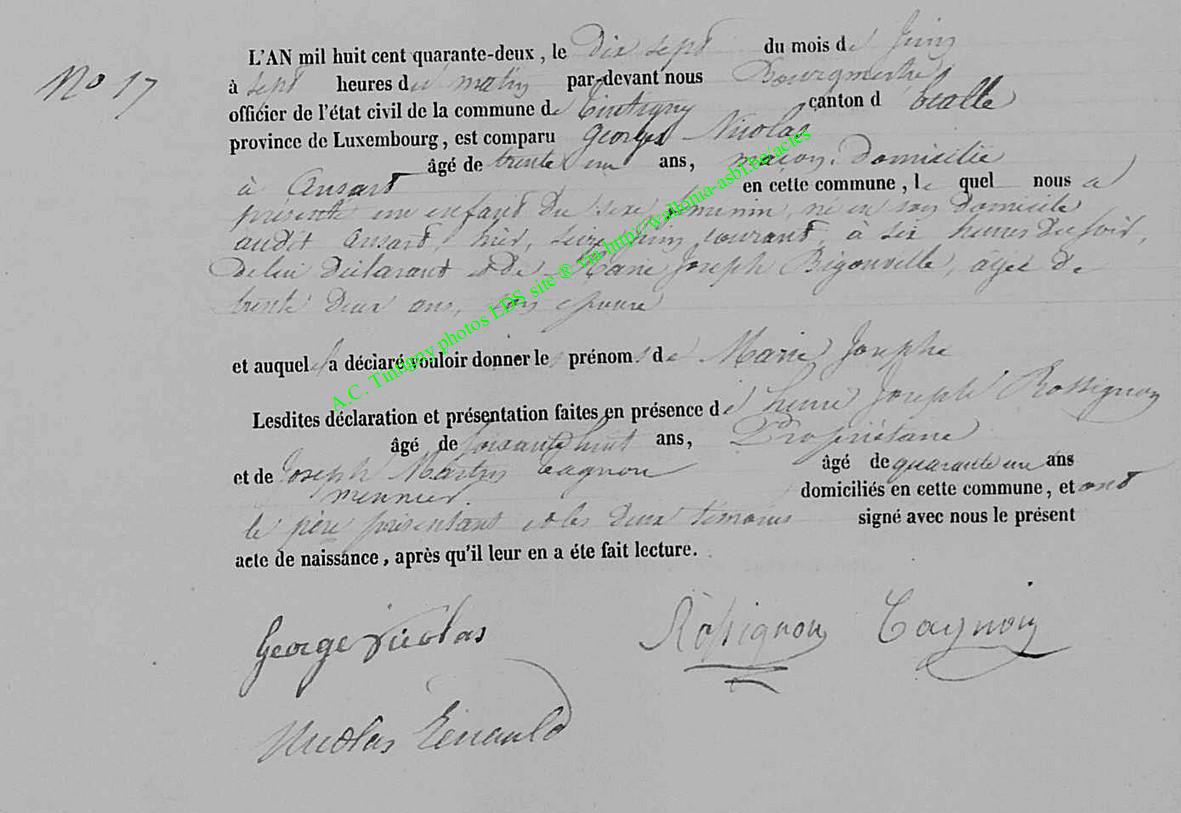 L'AN mil huit cent quarante-deux, le dix sept du mois de Juin
No 17
à sept heures du matin par-devant nous Bourgmestre
officier de l'état civil de la commune de Tintigny canton d' Etalle
province de Luxembourg, est comparu Georges Nicolas
âgé de trente un ans, maçon, domicilié
à Ansart en cette commune, le quel nous a
présenté un enfant du sexe féminin, né en son domicile
audit Ansart, hier, seize Juin courant, à six heures du soir,
de lui déclarant et de Marie Joseph Bigonville, agée de
trente deux ans, son épouse
et auquel il a déclaré vouloir donner les prénoms de Marie Josephe
Lesdites déclaration et présentation faites en présence de henri Joseph Rossignon
âgé de soixante huit ans, Propriétaire
et de Joseph Martin Tagnon âgé de quarante un ans
meunier domiciliés en cette commune, et ont
le père présentant et les deux témoins signé avec nous le présent
acte de naissance, après qu'il leur en a éte fait lecture.
George Nicolas Rossignon Tagnon
Nicolas
A.C. Tintigny photos EDS site ® via http://wallonia-asbl.be/actes